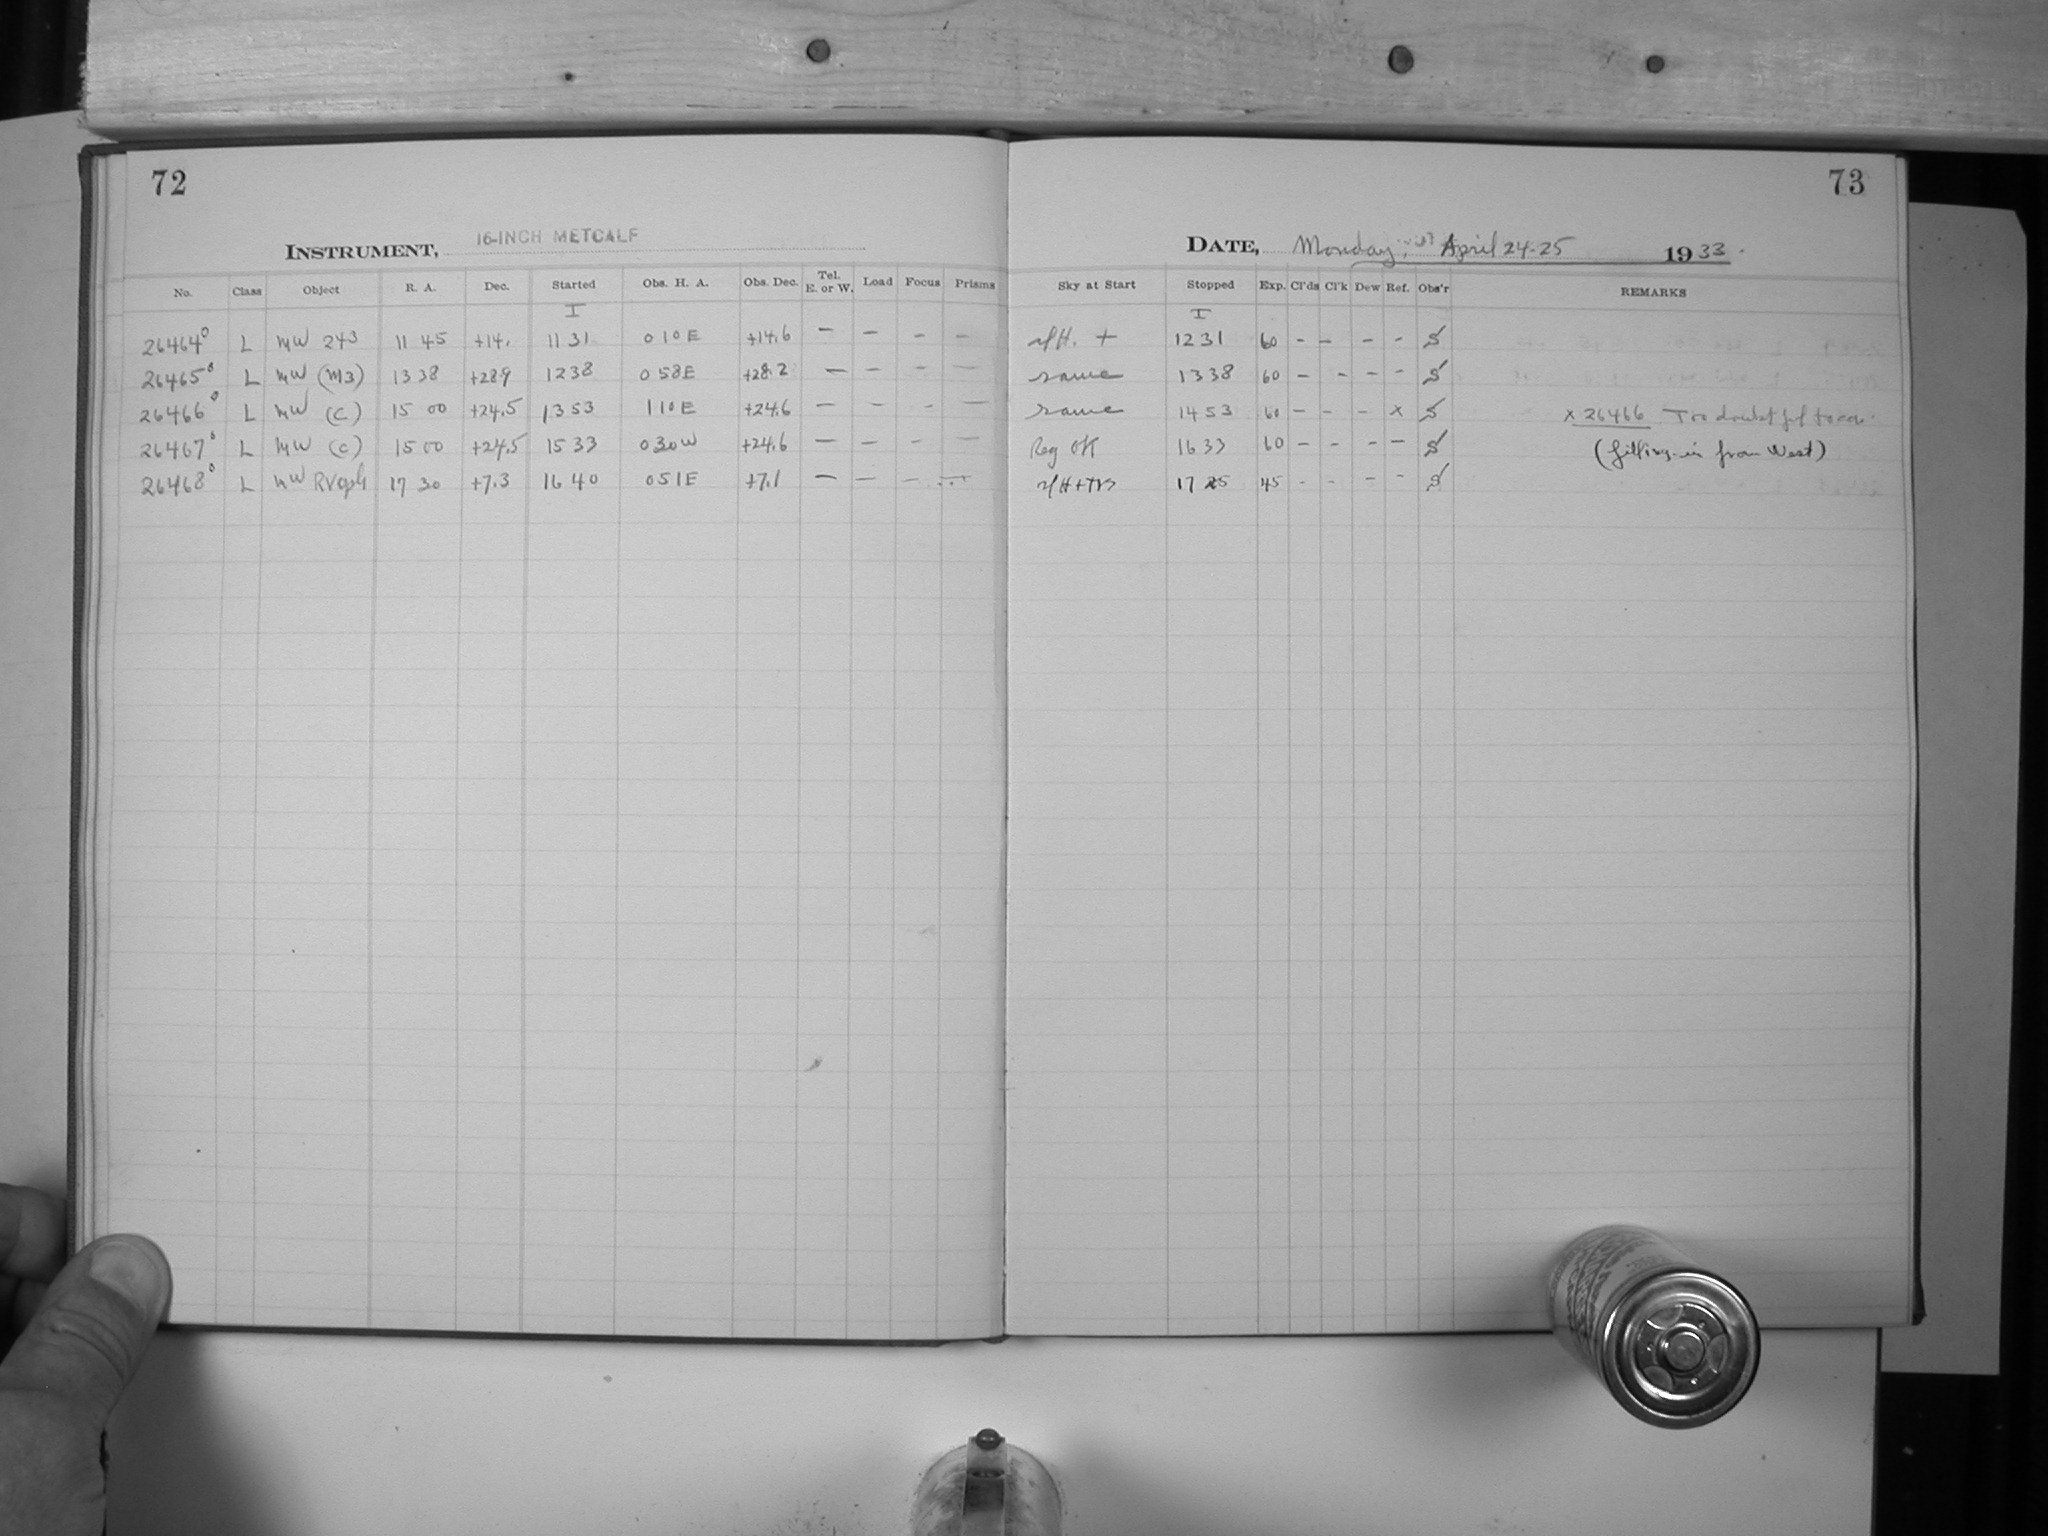 72
73
INSTRUMENT, 16-INCH METCALF
DATE, Monday, April 24-25 1933.
No. Class Object R. A. Dec. Started Obs. H. A. Obs. Dec. Tel. E. or W. Load Focus Prisms Sky at Start Stopped Exp. Cl'ds Cl'k Dew Ref. Obs'r REMARKS
I I
26464° L MW 243 11 45 +14. 11 31 0 10 E +14.6 — — - — + 12 31 60 - - - - S
26465° L MW (M3) 13 38 +28.9 12 38 0 58 E +28.2 — — - — same 13 38 60 - - - - S
26466° L MW (C) 15 00 +24.5 13 53 1 10 E +24.6 — — - — same 14 53 60 - - - x S x 26466 Too doubtful to
26467° L MW (C) 15 00 +24.5 15 33 0 30 W +24.6 — — - — Reg OK 16 33 60 - - - - S (filling-in from West)
26468° L MW RVoph 17 30 +7.3 16 40 0 51 E +7.1 — — - — 17 25 45 - - - - S